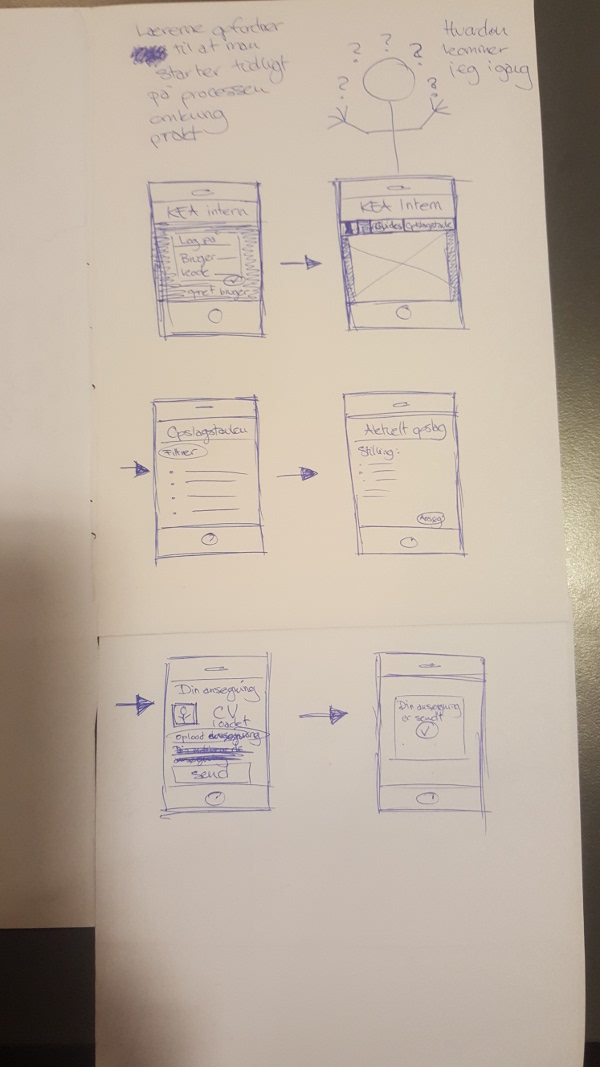 Lærerne opfordrer
til at man
starter tidligt
på processen
omkring
prakt
Hvordan
kommer
jeg igang
? ? ? ? ? ?
KEA intern
Log på
Bruger
kode
opret bruger
KEA Intern
Guides Opslagstavle
Opslagstavlen
Filtrer
Aktuelt opslag
Stilling:
Ansøg
Din ansøgning
CV
loadet
Upload ansøgning
send
Din ansøgning
er sendt